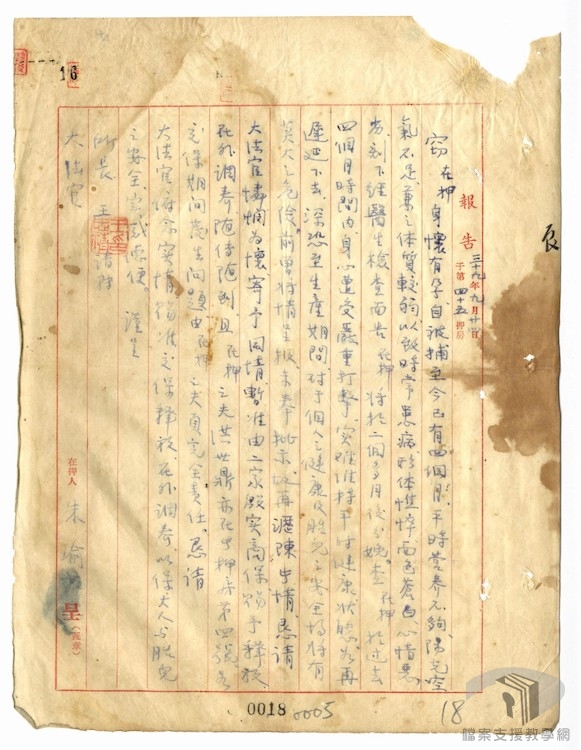 16
報告 三十九年九月廿日 于第四十五押房
竊在押身懷有孕自被捕至今已有四個月平時營養不夠陽光空
氣不足兼之体質較弱以致時常患病形体憔悴面色蒼白心情惡
劣刻下經醫生檢查面告在押將於二個多月後分娩查在押於过去
四個月時間内身心遭受嚴重打擊实难維持平时健康狀態若再
遲延下去深恐至生產期間对于個人之健康及胎兒之安全均將有
莫大之危险前曾將情呈报未奉批示故再瀝陳中情恳请
大法官憐憫為懷寄予同情暫准由二家殷实商保賜予釋放
在外調养随传随到且在押之夫洪世鼎亦在押房第四號若
交保期间发生问题由在押之夫負完全責任恳请
大法官俯念实情賜准交保釋放在外調养以保大人与胎兒
之安全实感德便 謹呈
所長王 請轉
大法官
在押人 朱瑜 呈(蓋章)
0018
0005
18
檔案支援教學網